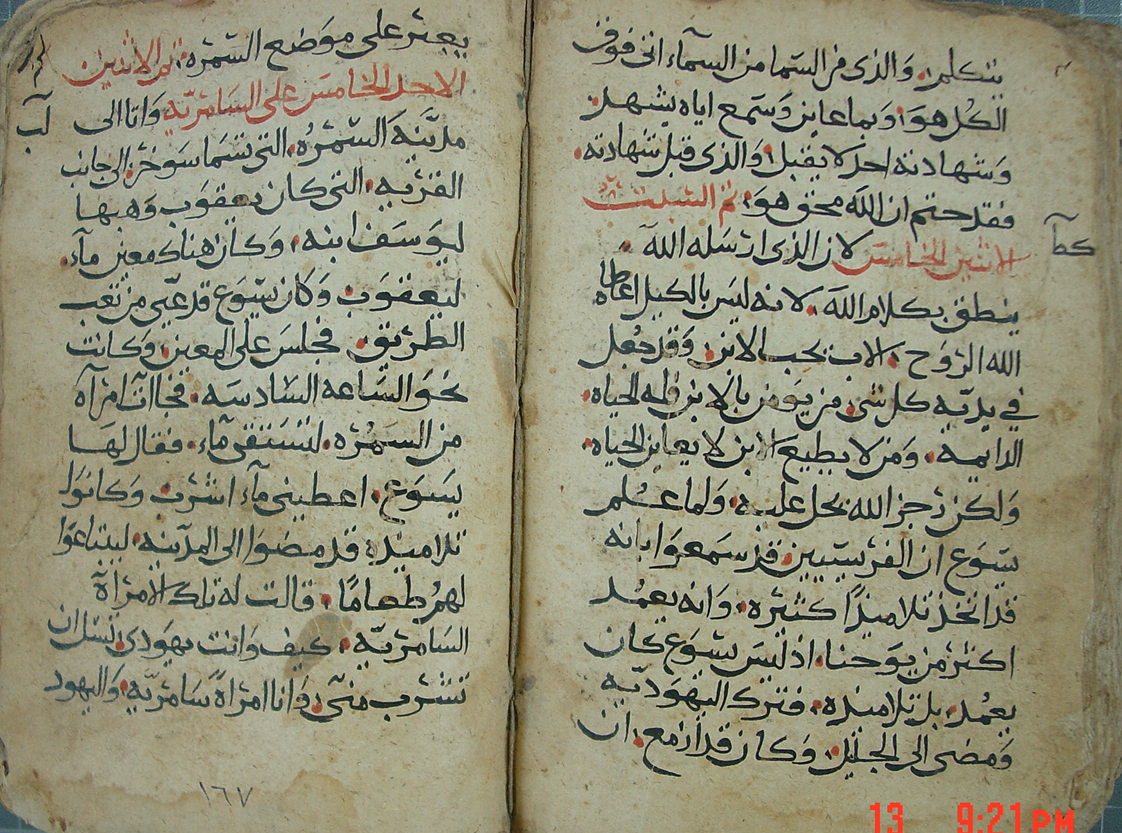 يتكلم، والذى من السما من السمآء اتى فوق
الكل هو، وبما عاين وسمع اياه يشهد،
وشهادته احد لا يقبل، والذى قبل شهادته،
فقد ختم ان الله محق هو، تم السبت
كطآ
الاثنين الخامس لان الذى ارسله الله
ينطق بكلام الله، لانه ليس بالكيل اعطا
الله الروح، الاب يحب الابن، وقد جعل
في يديه كل شى، من يومن بالابن فله الحياه،
الدايمه، ومن لا يطيع الابن لا يعاين الحياه،
ولكن رجز الله يحل عليه، ولما علم
يسوع ان الفريسيين قد سمعوا بانه
قد اتخذ تلاميذًا كثيره، وانه يعمد
اكثر من يوحنا، اذ ليس يسوع كان
يعمد، بل تلاميذه، فترك اليهوديه
ومضى الى الجليل، وكان قد ازمع، ان
يعبر على موضع السمره، تم الاثنين
الاحد الخامس على السامريه واتا الى
لب
مدينه السمره، التى تسما سوخر، الى جانب
القريه، التى كان يعقوب وهبها
ليوسف ابنه، وكان هناك معين مآء،
ليعقوب وكان يسوع قد عيي من تعب
الطريق، فجلس على المعين، وكانت
نحو الساعه السادسه، فجاات امرآه
من السمره، لتستقى مآء، فقال لها
يسوع، اعطينى مآء اشرب وكانوا
تلاميذه قد مضوا الى المدينه، ليبتاعوا
لهم طعامًا، قالت له تلك الامرآة
السامريه، كيف وانت يهودى، تسل ان
تشرب منى، وانا امراة سامريه، واليهود
١٦٧
13 9:21PM